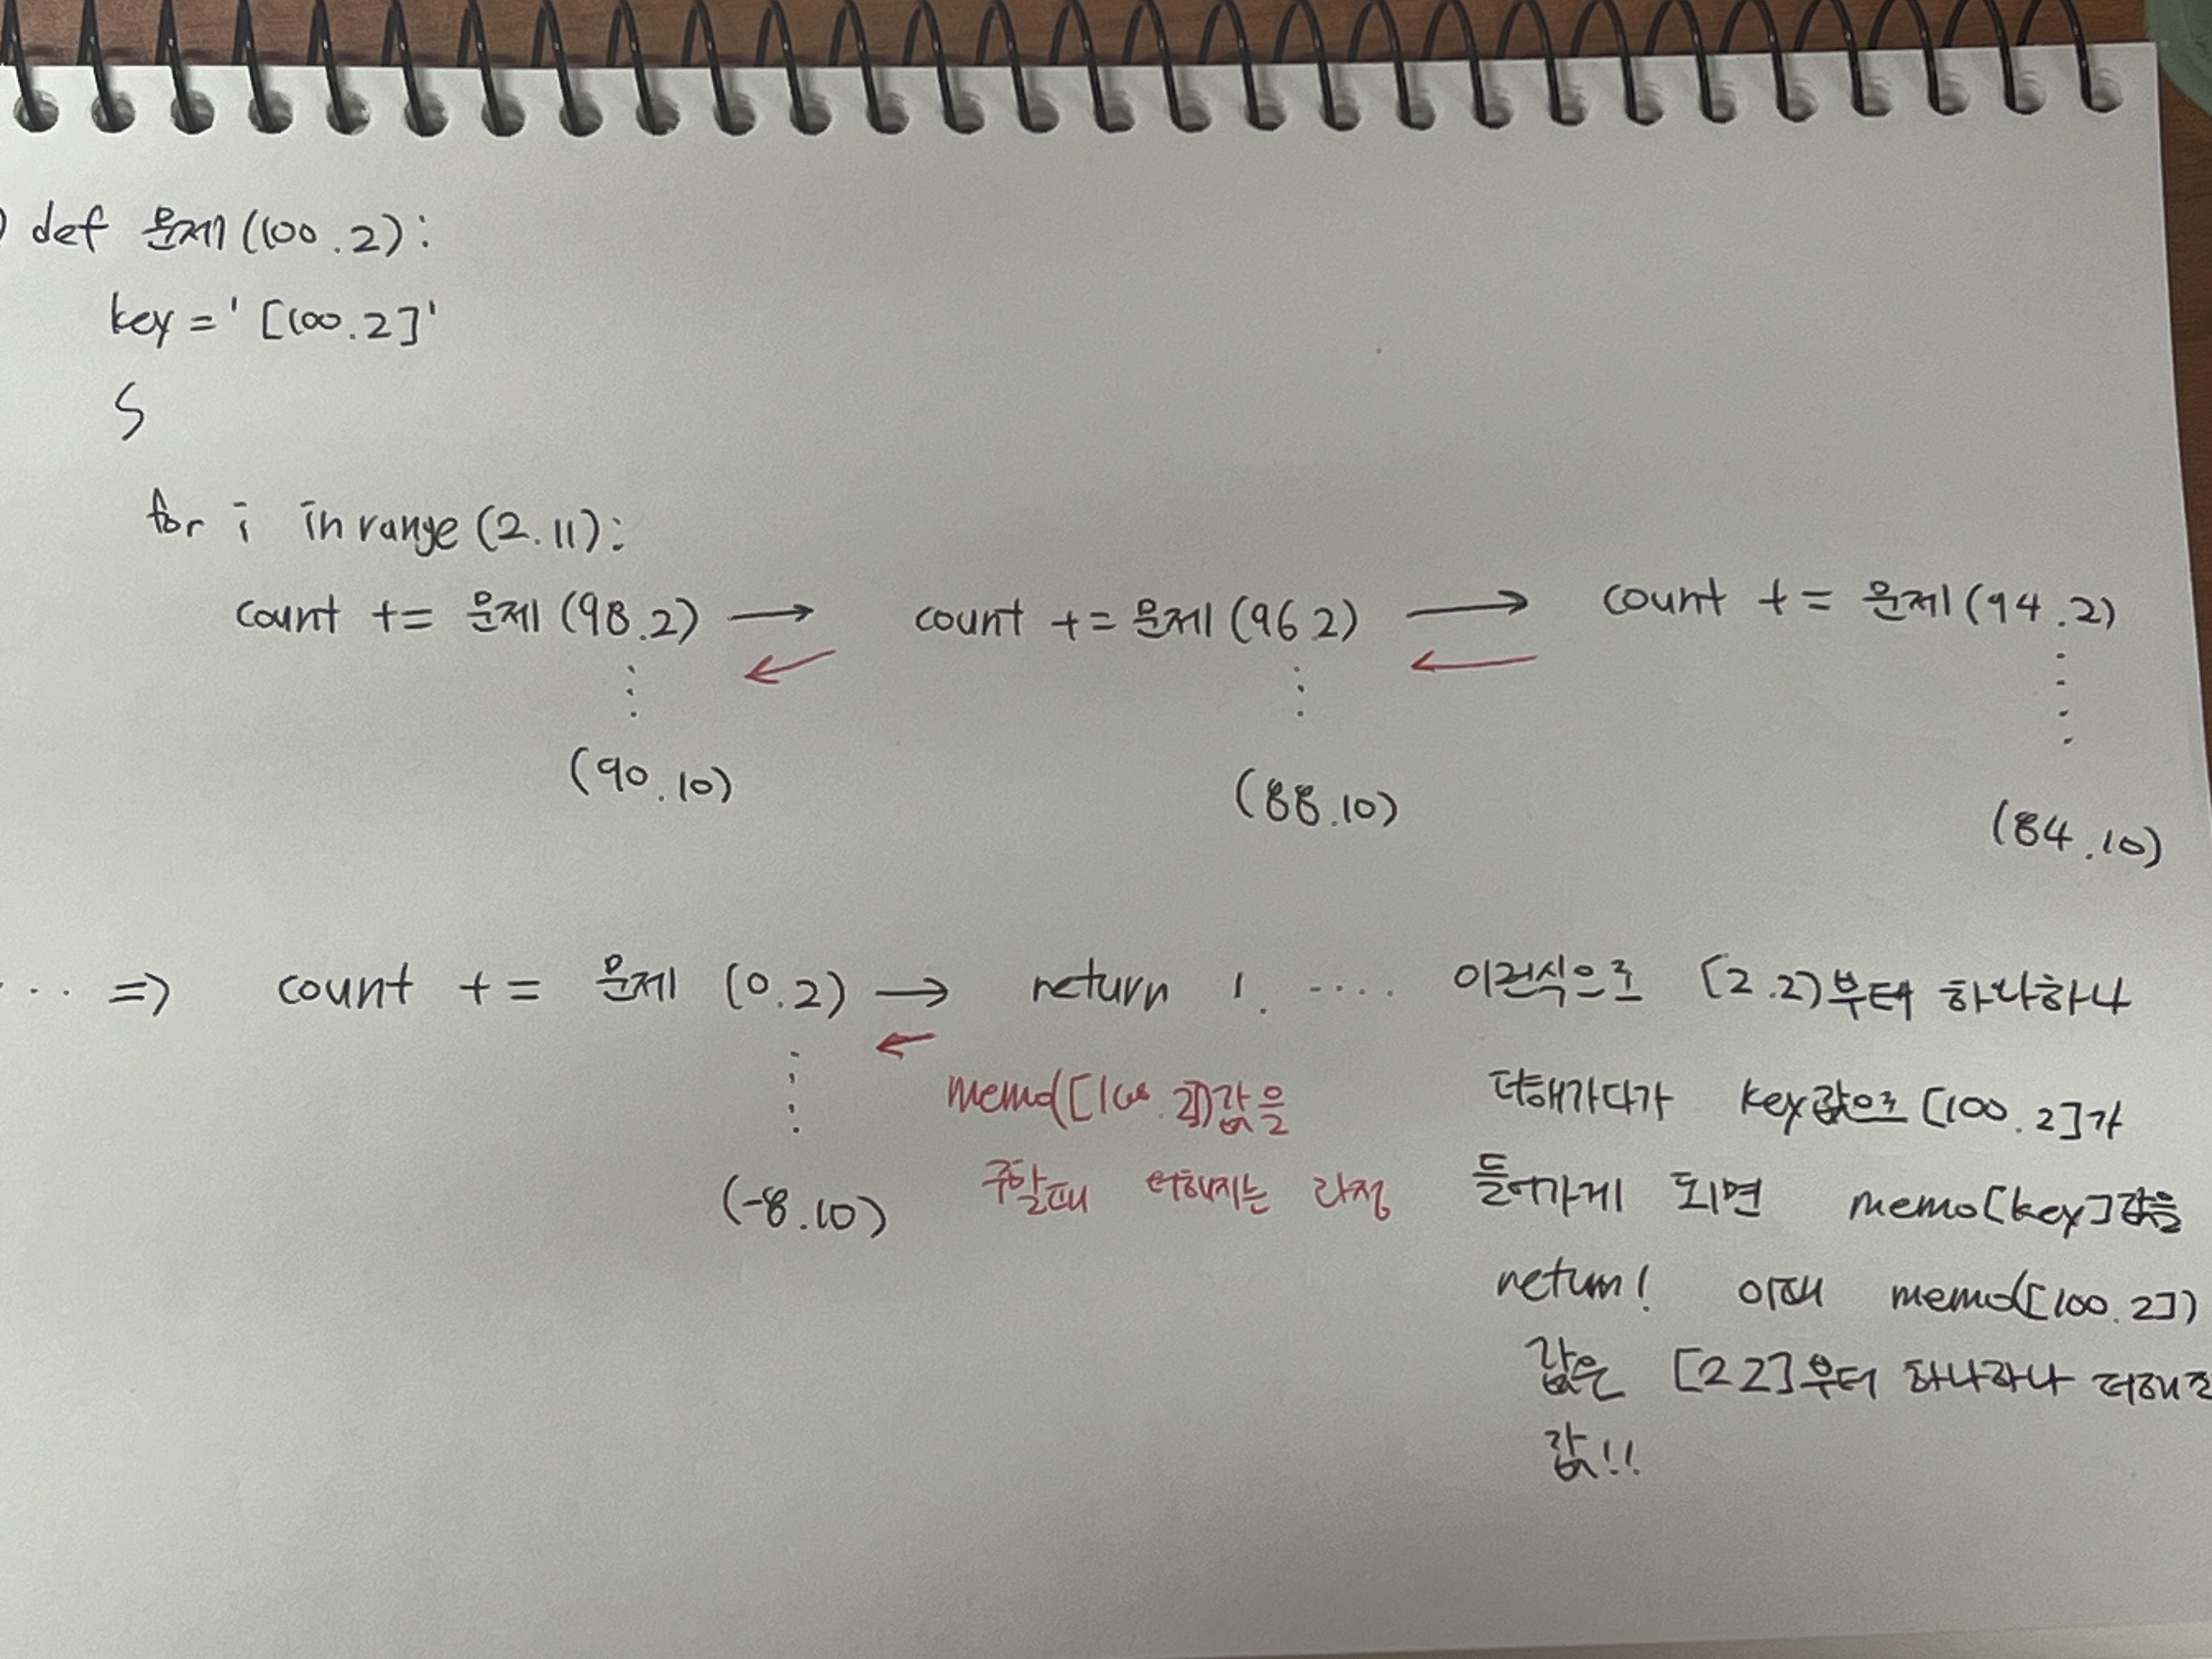 ) def 문제(100.2):
key = '[100.2]'
S
for i in range(2.11):
count += 문제(98.2) → count += 문제(96 2) → count += 문제(94.2)
← ←
(90.10) (88.10) (84.10)
... ⇒ count += 문제 (0.2) → return 1. .... 이런식으로 [2.2)부터 하나하나
←
memo([100.2])값을 더해가다가 key값으로 [100.2]가
(-8.10) 구할때 더해지는 과정 들어가게 되면 memo[key]값을
return! 이때 memo([100.2])
값은 [2 2]부터 하나하나 더해진
값!!